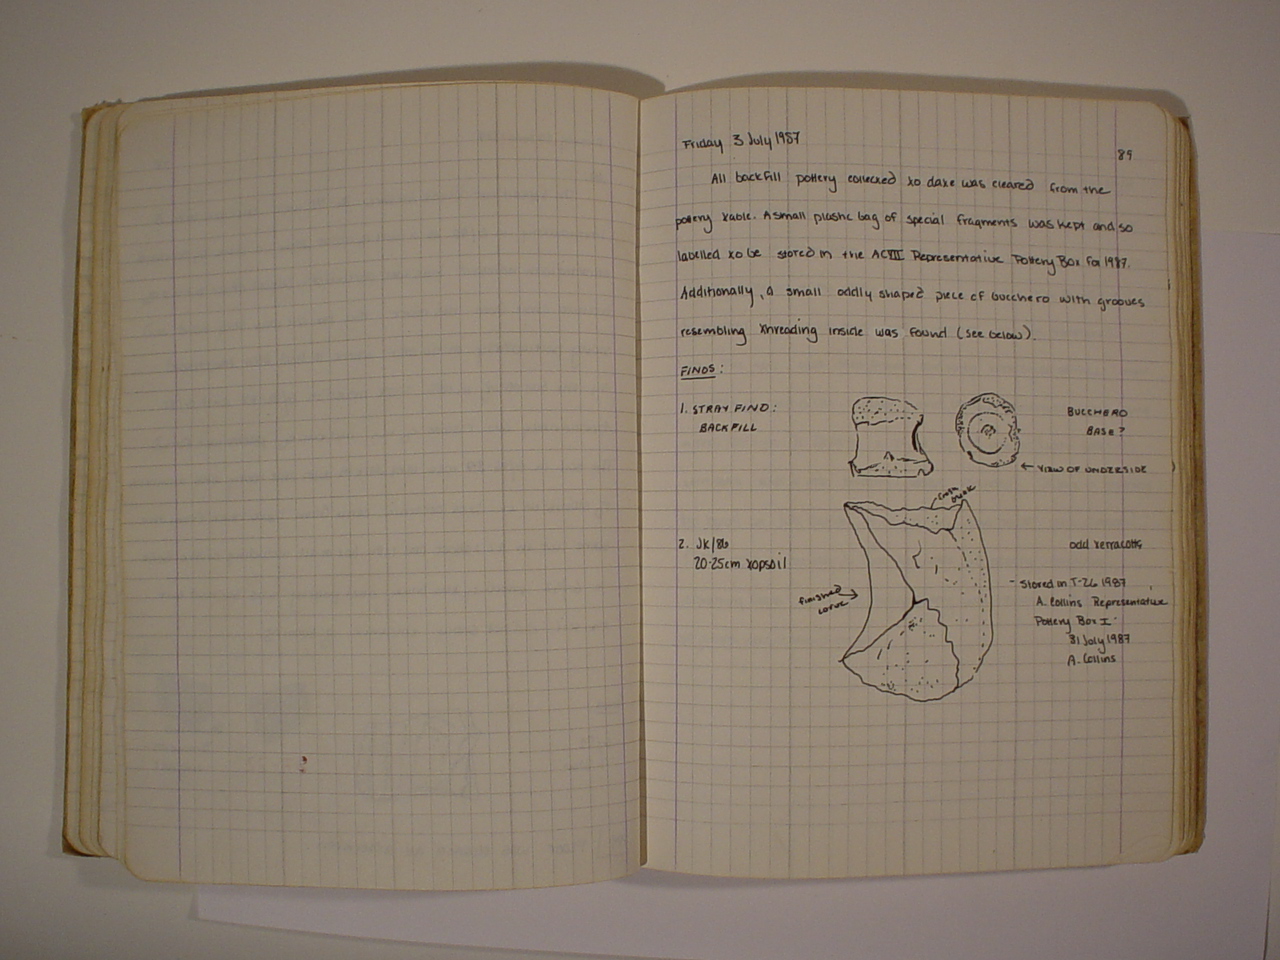 Friday 3 July 1987
89
All backfill pottery collected to date was cleared from the
pottery table. A small plastic bag of special fragments was kept and so
labelled to be stored in the ACVIII Representative Pottery Box for 1987.
Additionally, a small oddly shaped piece of bucchero with grooves
resembling threading inside was found (see below).
FINDS:
1. STRAY FIND:
BACKFILL
BUCCHERO
BASE?
← VIEW OF UNDERSIDE
fresh
break
2. JK/86
20-25cm topsoil
finished
curve
odd terracotta
- Stored in T-26 1987
A. Collins Representative
Pottery Box I:
31 July 1987
A. Collins